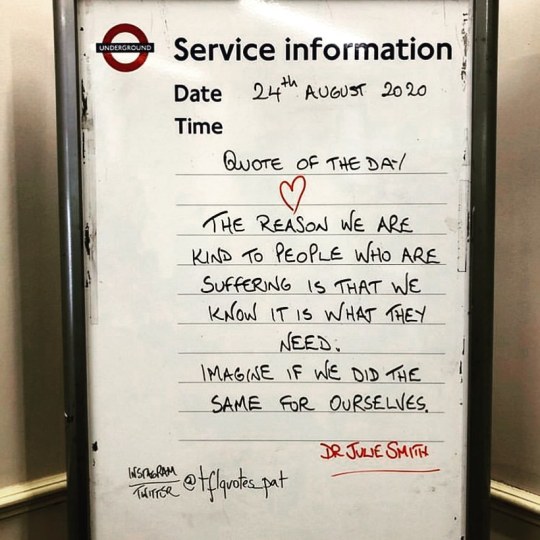 UNDERGROUND
Service information
Date 24th AUGUST 2020
Time
QUOTE OF THE DAY
THE REASON WE ARE
KIND TO PEOPLE WHO ARE
SUFFERING IS THAT WE
KNOW IT IS WHAT THEY
NEED.
IMAGINE IF WE DID THE
SAME FOR OURSELVES.
DR JULIE SMITH
INSTAGRAM
TWITTER @tflquotes_pat